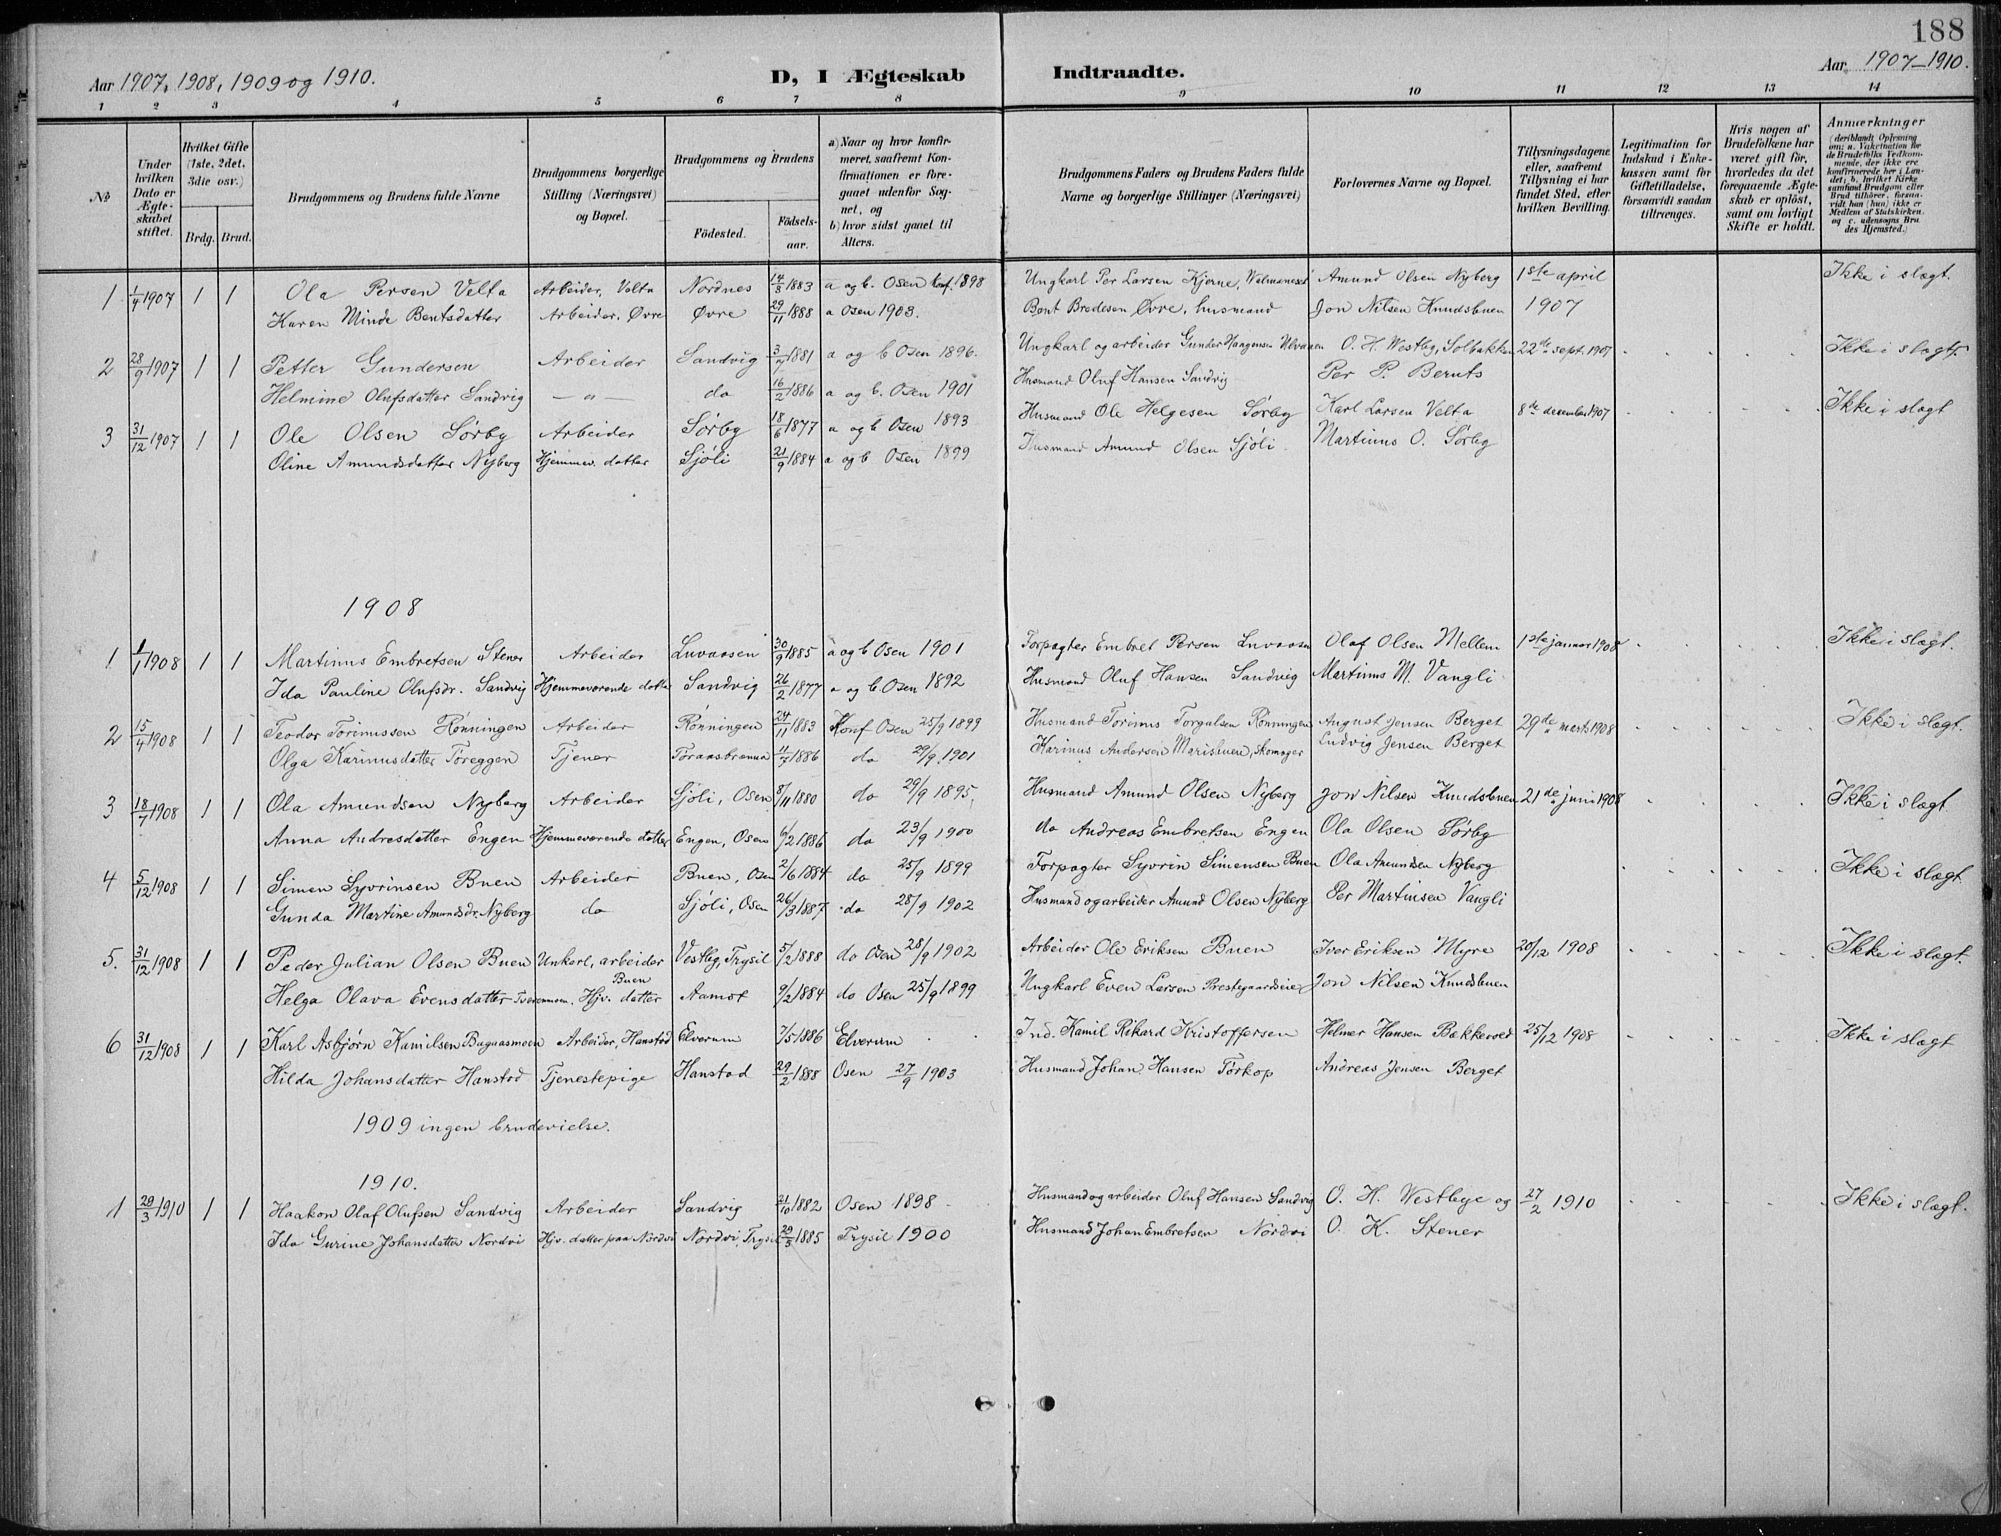 188
Aar 1907, 1908, 1909 og 1910. D, I Ægteskab Indtraadte. Aar 1907-1910.
1 2 3 4 5 6 7 8 9 10 11 12 13 14
No
Under hvilken Dato er Ægteskabet stiftet.
Hvilket Gifte (1ste, 2det, 3die osv.)
Brdg. Brud.
Brudgommens og Brudens fulde Navne
Brudgommens borgerlige Stilling (Næringsvei) og Bopæl.
Brudgommens og Brudens
Födested. Födsels-aar.
a) Naar og hvor konfirmeret, saafremt Konfirmationen er foregaaet udenfor Sognet, og
b) hvor sidst gaaet til Alters.
Brudgommens Faders og Brudens Faders fulde Navne og borgerlige Stillinger (Næringsvei)
Forlovernes Navne og Bopæl.
Tillysningsdagene eller, saafremt Tillysning ei har fundet Sted, efter hvilken Bevilling.
Legitimation for Indskud i Enkekassen samt for Giftetilladelse, forsaavidt saadan tiltrænges.
Hvis nogen af Brudefolkene har været gift för, hvorledes da det foregaaende Ægteskab er oplöst, samt om lovligt Skifte er holdt.
Anmærkninger (deriblandt Oplysning om: a. Vakcination for de Brudefolks Vedkommende, der ikke ere konfirmerede her i Landet; b. hvilket Kirkesamfund Brudgom eller Brud tilhörer, forsaavidt han (hun) ikke er Medlem af Statskirken, og c. udensogns Brudes Hjemsted.)
1 1/4 1907 1 1 Ola Persen Velta Arbeider, Velta Nordnes 14/3 1883 a og b. Osen konf. 1898 Ungkarl Per Larsen Kjerne, Amund Olsen Nyberg 1ste april Ikke i slægt.
Karen Minde Bentsdatter Arbeider, Øvre Øvre 29/11 1888 a Osen 1903. Bent Bredesen Øvre, husmand Jon Nilsen Knudsbuen 1907
2 28/9 1907 1 1 Petter Gundersen Arbeider Sandvig 3/7 1881 a og b Osen 1896. Ungkarl og arbeider Gunder Haagensen O. H. Westby, Solbakken 22de sept. 1907 Ikke i slægt.
Helmine Olufsdatter Sandvig — " — do 16/2 1886 a og b. Osen 1901 Husmand Oluf Hansen Sandvig Per P. Beruts
3 31/12 1907 1 1 Ole Olsen Sørby Arbeider Sørby 18/6 1877 a og b Osen 1893 Husmand Ole Helgesen Sørby Karl Larsen Velta 8de december 1907 Ikke i slægt
Oline Amundsdatter Nyberg Hjemmev. datter Sjöli 21/9 1884 a og b Osen 1899 Husmand Amund Olsen Sjöli Martinus O. Sørby
1908
1 1/1 1908 1 1 Martinus Embretsen Stener Arbeider Luvaasen 30/9 1885 a og b Osen 1901 Forpagter Embret Persen Luvaasen Olaf Olsen Mellem 1ste januar 1908 Ikke i slægt.
Ida Pauline Olufsdr. Sandvig Hjemmeværende datter Sandvig 26/2 1877 a og b. Osen 1892 Husmand Oluf Hansen Sandvig Martinus M. Vangli
2 15/4 1908 1 1 Teodor Torinussen Rønningen Arbeider Rønningen 24/11 1883 Konf Osen 25/9 1899 Husmand Torinus Torgalsen Rønningen August Jensen Berget 29de marts 1908 Ikke i slægt.
Olga Karinusdatter Töreggen Tjener 11/7 1886 do 29/9 1901 Karinus Andersen skomager Ludvig Jensen Berget
3 18/7 1908 1 1 Ola Amundsen Nyberg Arbeider Sjöli, Osen 8/11 1880 do 29/9 1895, Husmand Amund Olsen Nyberg Jon Nilsen Knudsbuen 21de juni 1908 Ikke i slægt.
Anna Andresdatter Engen Hjemmeværende datter Engen, Osen 6/2 1886 do 23/9 1900 do Andreas Embretsen Engen Ola Olsen Sørby
4 5/12 1908 1 1 Simen Syvrinsen Buen Arbeider Buen, Osen 2/6 1884 do 25/9 1899 Forpagter Syvrin Simensen Buen Ola Amundsen Nyberg Ikke i slægt.
Gunda Martine Amundsdr. Nyberg do Sjöli, Osen 26/3 1887 do 28/9 1902 Husmand og arbeider Amund Olsen Nyberg Per Martinsen Vangli
5. 31/12 1908 1 1 Peder Julian Olsen Buen Unkarl, arbeider Buen Vestby, Trysil 5/2 1888 do Osen 28/9 1902 Arbeider Ole Eriksen Buen Iver Eriksen Myre 20/12 1908 Ikke i slægt.
Helga Olava Evensdatter Hjv. datter Aamot 9/2 1884 do Osen 25/9 1899 Ungkarl Even Larsen Prestegaardseie Jon Nilsen Knudsbuen
6 31/12 1908 1 1 Karl Asbjørn Kamilsen Arbeider, Hanstad Elverum 7/5 1886 Elverum Ind. Kamil Rikard Kristoffersen Helmer Hansen Bækkevold 25/12 1908 Ikke i slægt
Hilda Johansdatter Hanstad Tjenestepige Hanstad 29/2 1888 Osen 27/9 1903 Husmand Johan Hansen Törkop Andreas Jensen Berget
1909 ingen brudevielse.
1910.
1 29/3 1910 1 1 Haakon Olaf Olufsen Sandvig Arbeider Sandvig 21/10 1882 Osen 1898 Husmand og arbeider Oluf Hansen Sandvig O. H. Westbye og 27/2 1910 Ikke i slægt.
Ida Gurine Johansdatter Nordvi Hjv. datter paa Nordvi Nordvi, Trysil 29/3 1885 Trysil 1900 Husmand Johan Embretsen Nordvi O. K. Stener